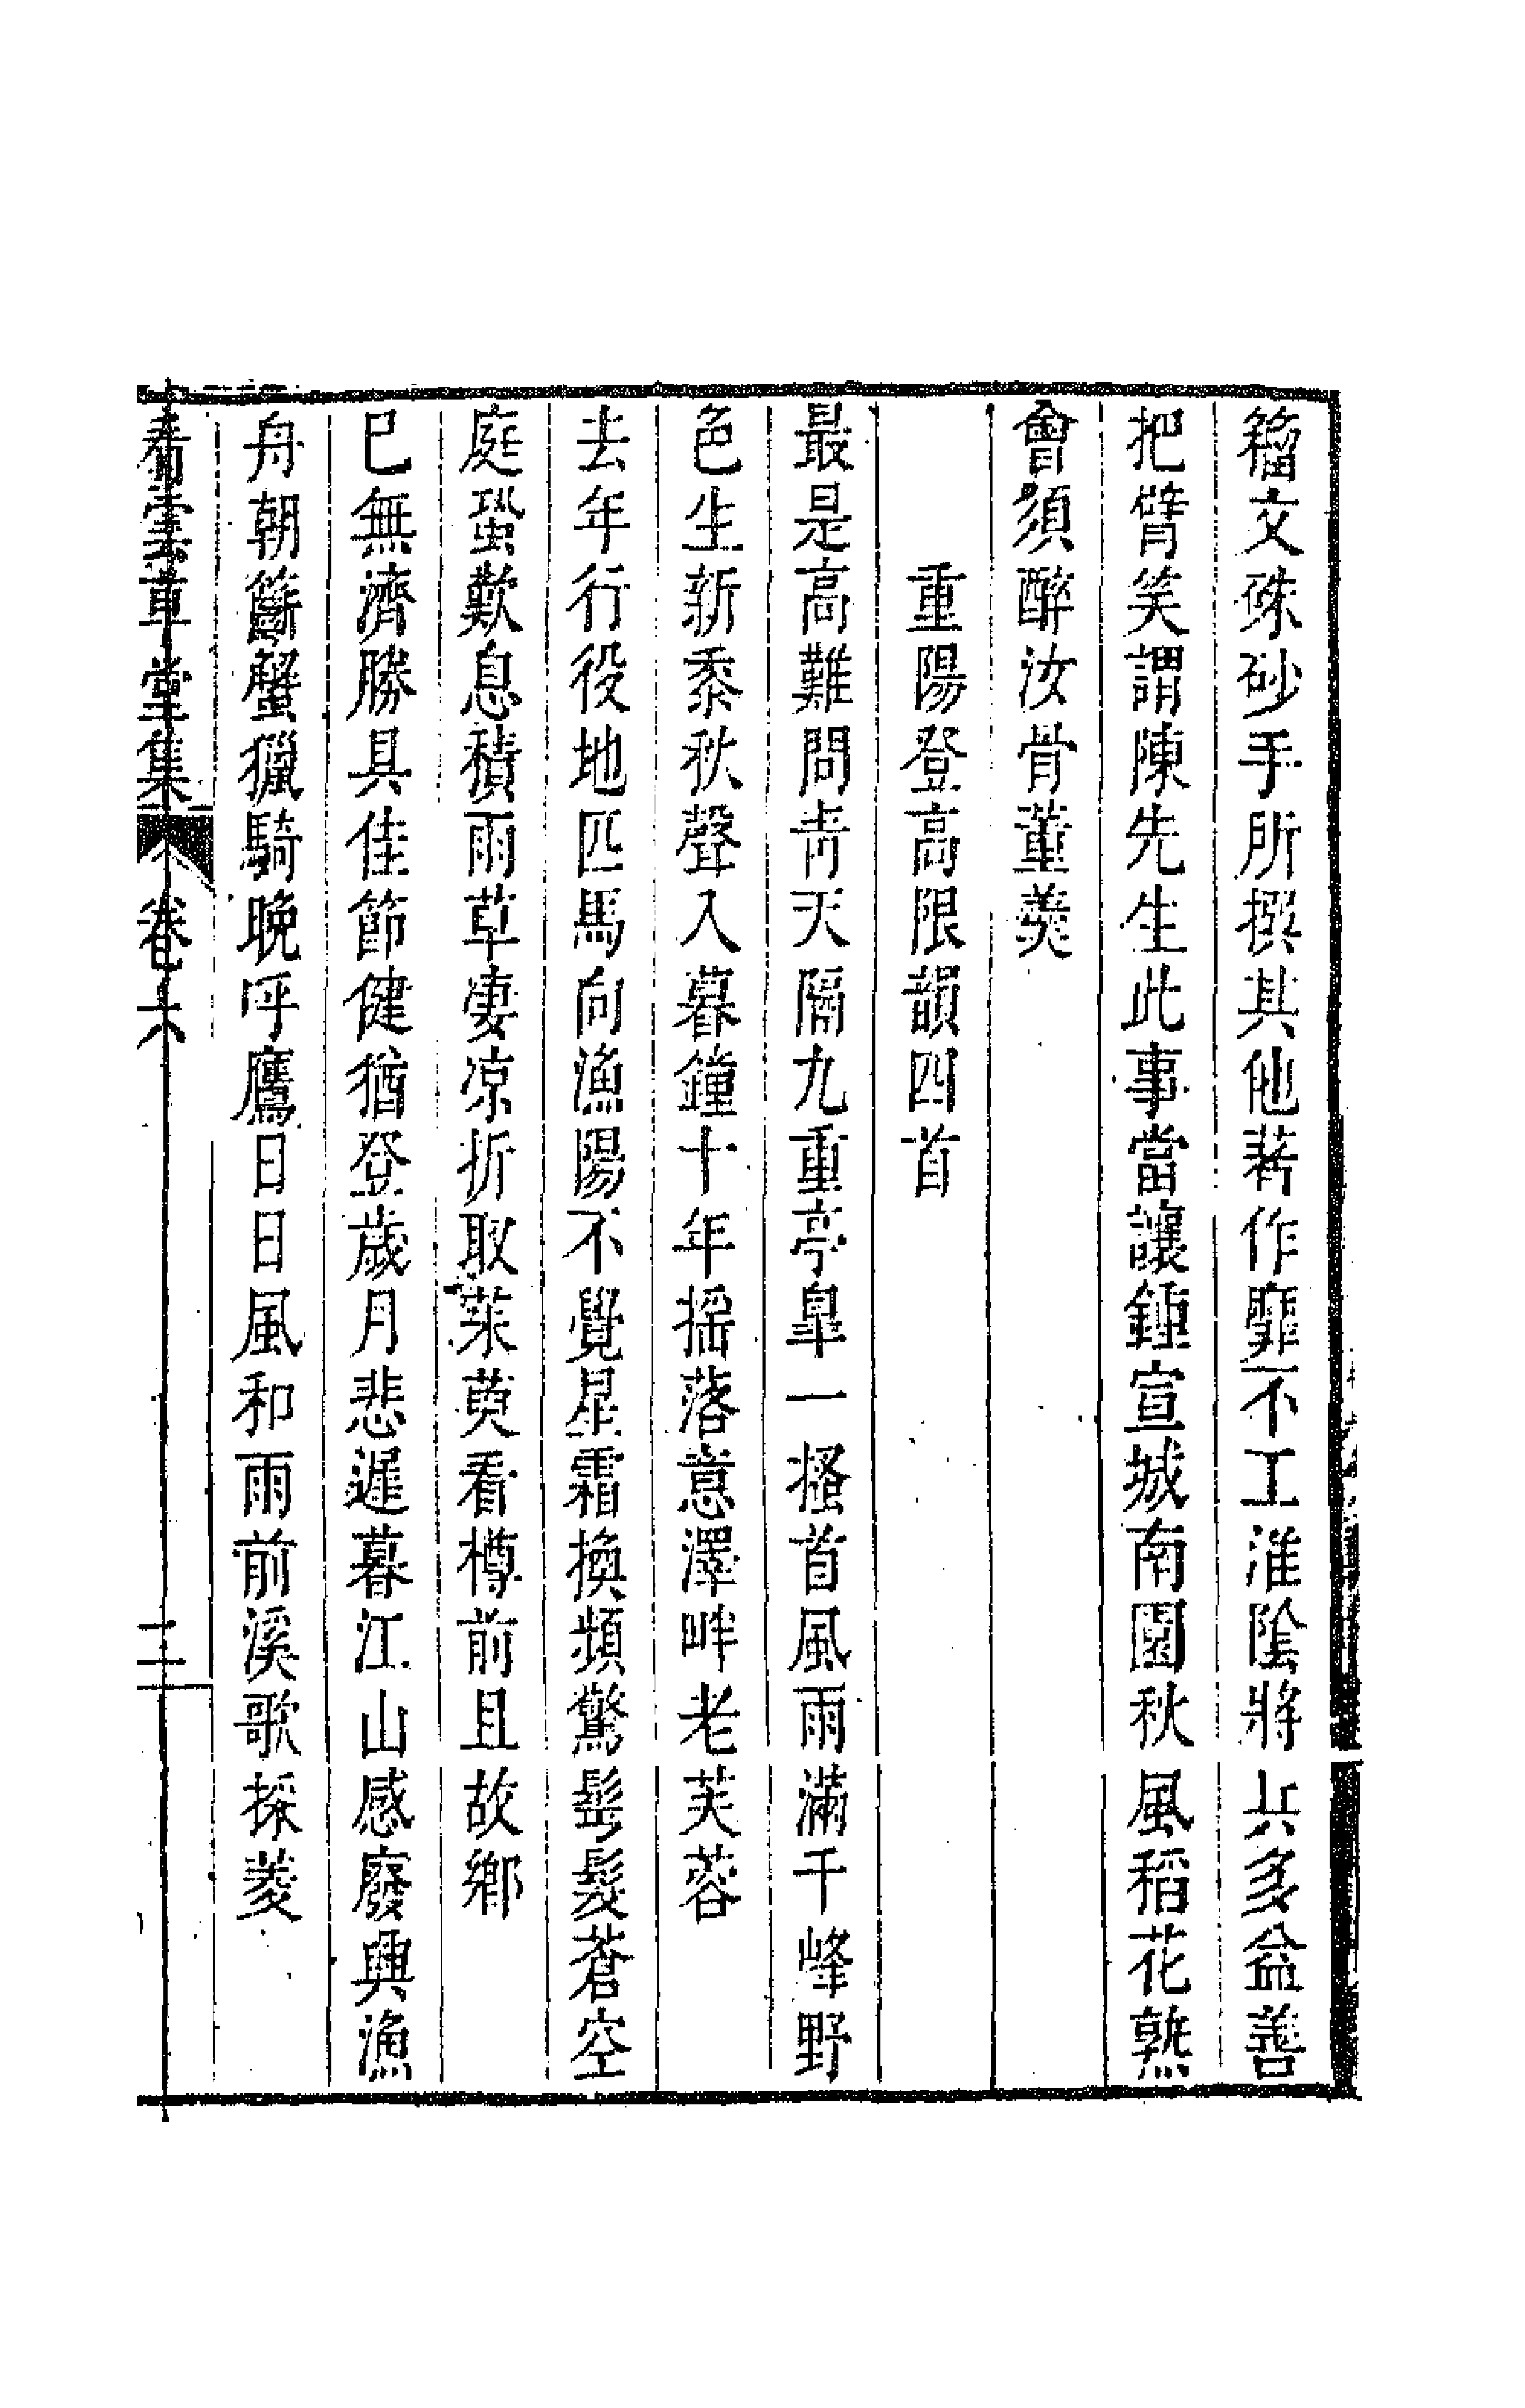 籀文硃砂手所撰其他著作靡不工淮陰將兵多益善
把臂笑謂陳先生此事當讓鍾宣城南園秋風稻花熟
會須醉汝骨董羮
重陽登高限韻四首
最是高難問青天隔九重亭臯一搔首風雨滿千峰野
色生新黍秋聲入暮鐘十年摇落意澤畔老芙蓉
去年行役地匹馬向漁陽不覺星霜換頻驚髩髮蒼空
庭蛩歎息積雨草凄凉折取茱萸看樽前且故鄉
已無濟勝具佳節健猶登歲月悲遲暮江山感廢興漁
舟朝籪蟹獵騎晚呼鷹日日風和雨前溪歌採菱
看雲草堂集 卷六 二